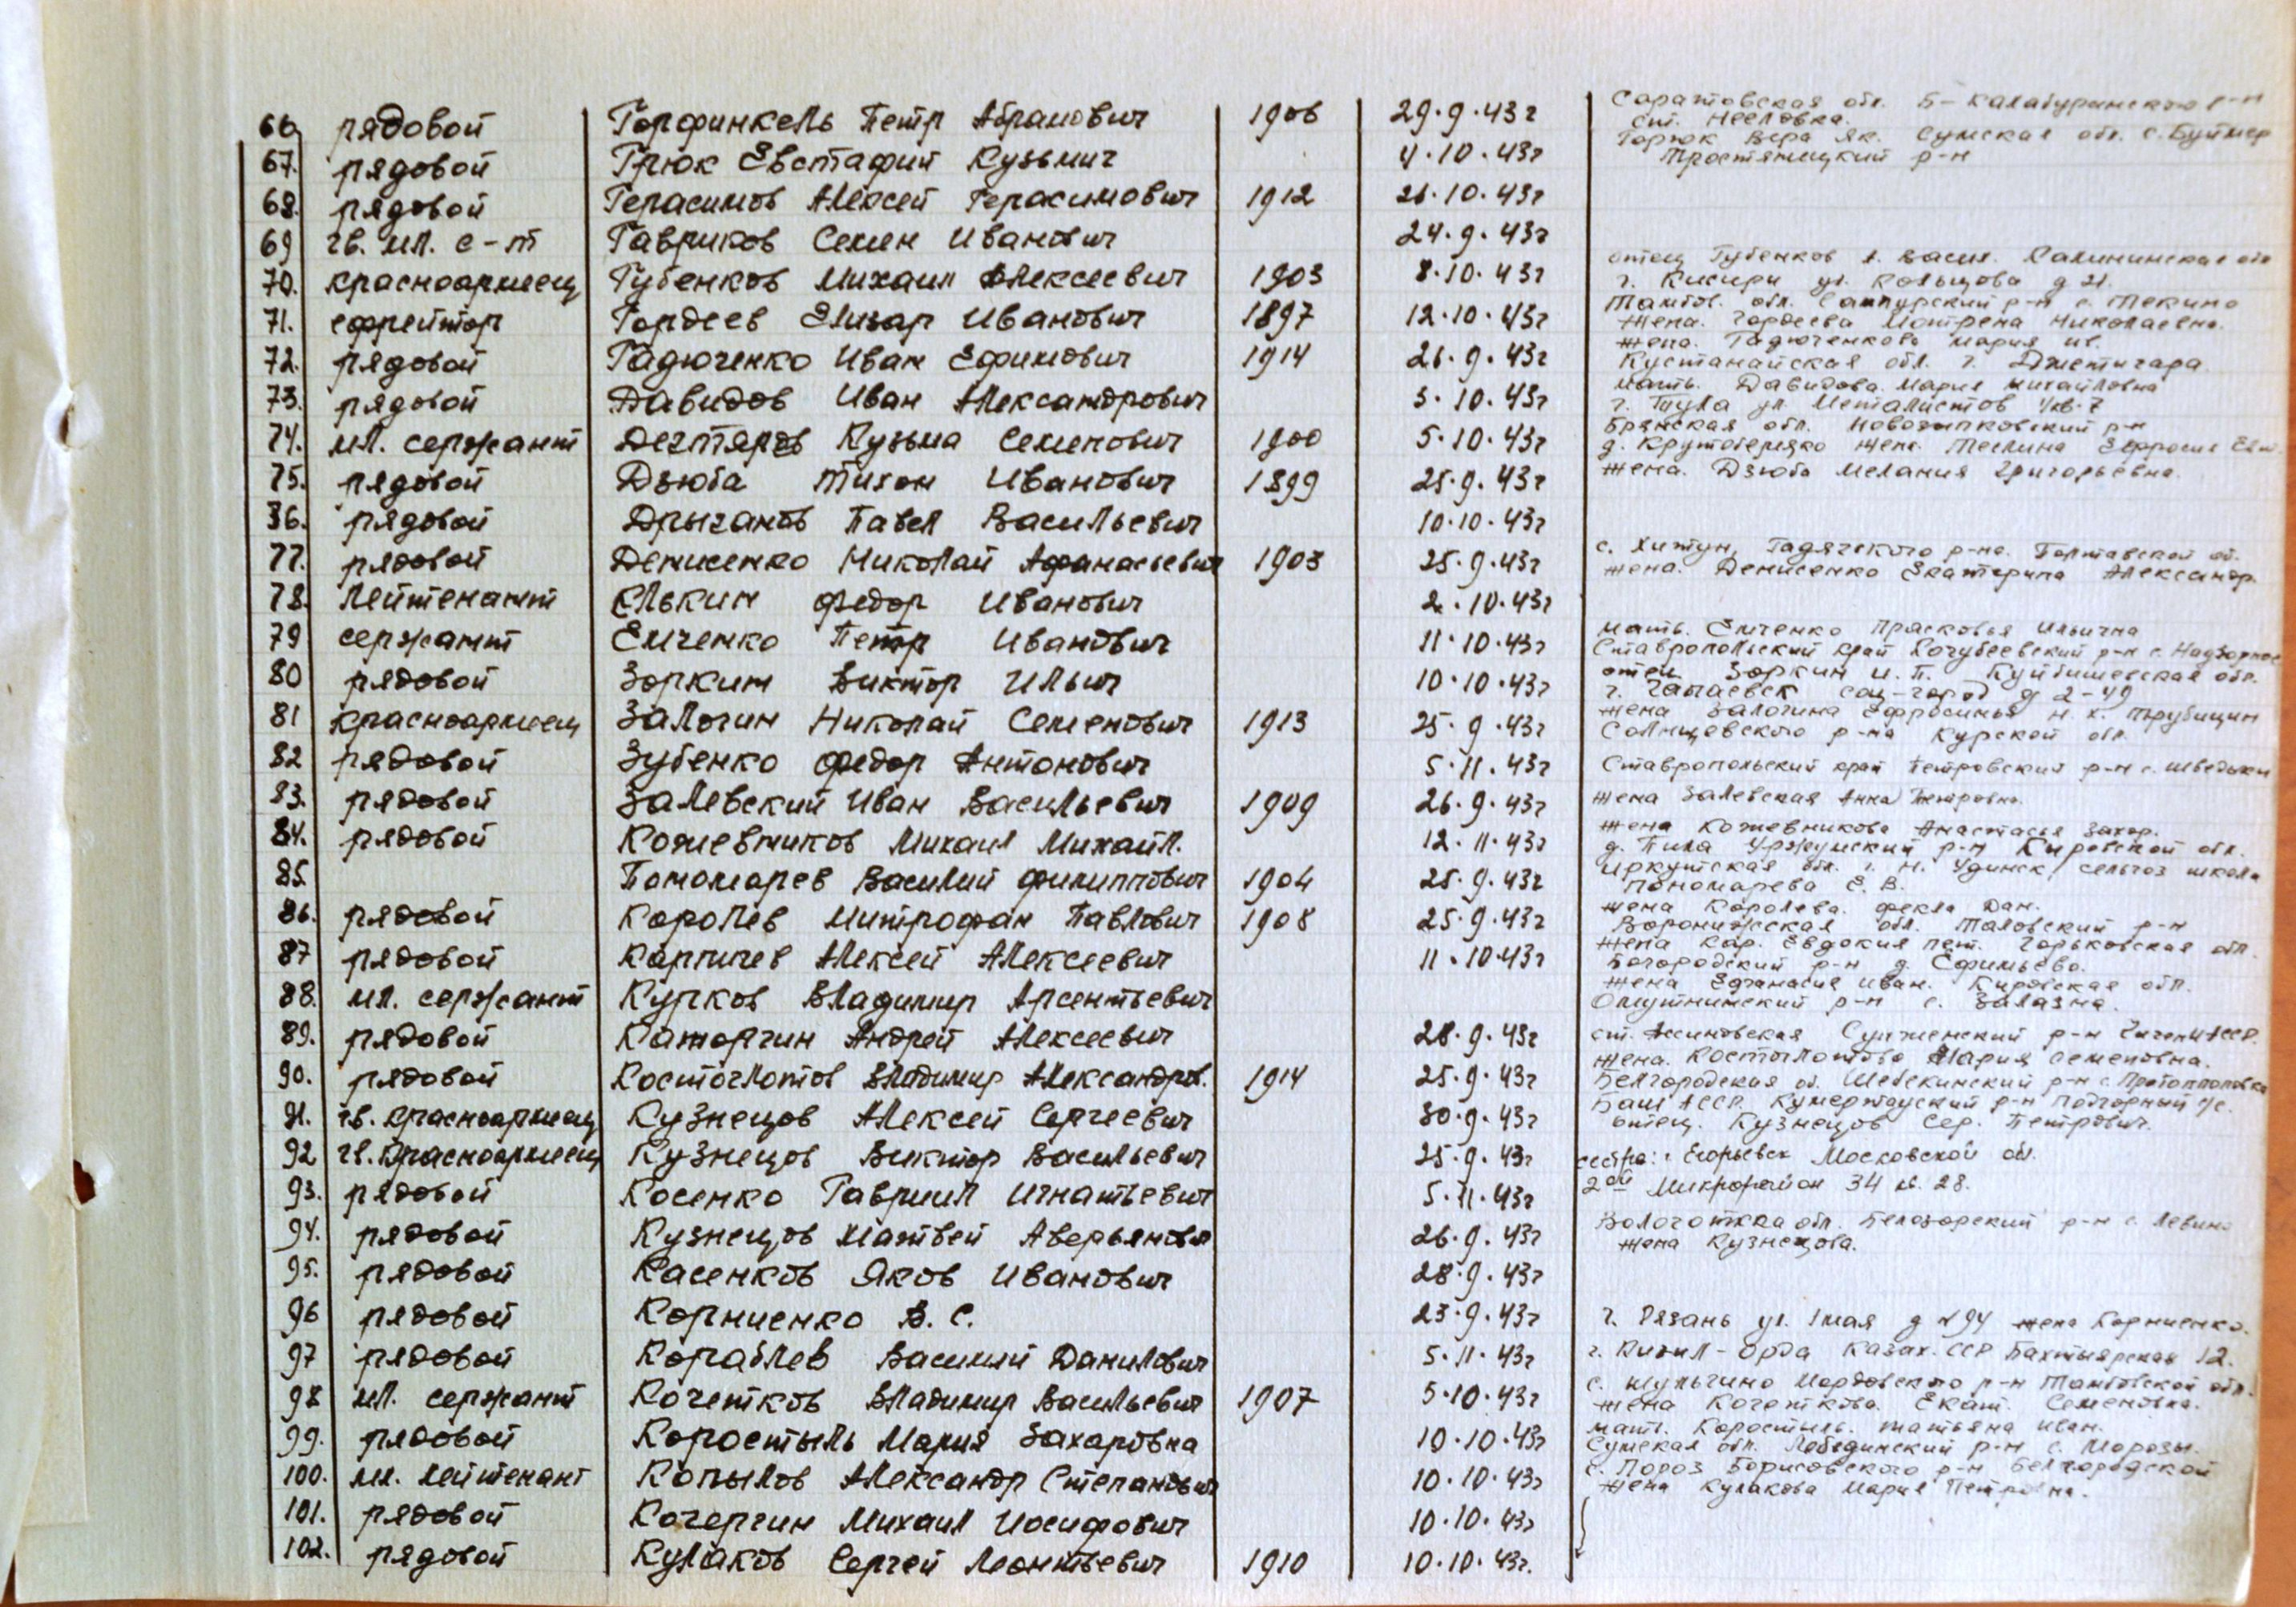 66. рядовой Горфинкель Петр Абрамович 1906 29.9.43г Саратовская обл. Б-Калабуринского р-н
ст. Неёловка.
67. рядовой Грюк Евстафий Кузьмич 4.10.43г Горюк Вера Як. Сумская обл. с. Буймер
Тростянецкий р-н
68. рядовой Герасимов Алексей Герасимович 1912 26.10.43г
69 гв. мл. с-т Гавриков Семен Иванович 24.9.43г
70. красноармеец Губенков Михаил Алексеевич 1903 8.10.43г отец Губенков А. Васил. Калининская обл
г. Кисири ул. Кольцова д 21.
71. ефрейтор Гордеев Елизар Иванович 1897 12.10.43г Тамбов. обл. Сампурский р-н с. Текино
жена. Гордеева Мотрена Николаевна.
72. рядовой Гадюченко Иван Ефимович 1914 26.9.43г жена. Гадюченкова Мария Ив.
Кустанайская обл. г. Джетигара
73. рядовой Давидов Иван Александрович 5.10.43г мать. Давидова Мария Михайловна
г. Тула ул. Металистов 4 кв. 7
74. мл. сержант Дегтярев Кузьма Семенович 1900 5.10.43г Брянская обл. Новозыпковский р-н
д. Крутоберезко жена. Теслина Ефросин Евт.
75. рядовой Дзюба Тихон Иванович 1899 25.9.43г жена. Дзюба Мелания Григорьевна.
36. рядовой Дрыганов Павел Васильевич 10.10.43г
77. рядовой Денисенко Николай Афанасьевич 1903 25.9.43г с. Хитун, Гадячского р-на. Полтавской об.
жена. Денисенко Екатерина Александр.
78. лейтенант Елькин Федор Иванович 2.10.43г
79 сержант Емченко Петр Иванович 11.10.43г мать. Емченко Прасковья Ильична
Ставропольский край Кочубеевский р-н с. Надзорное
80 рядовой Зоркин Виктор Ильич 10.10.43г отец Зоркин И. П. Куйбишевская обл.
г. Чапаевск соц-город д 2-49
81 красноармеец Залогин Николай Семенович 1913 25.9.43г жена Залогина Ефросинья Н. х. Трубицин
Солнцевского р-на Курской обл.
82 рядовой Зубенко Федор Антонович 5.11.43г Ставропольский край Петровский р-н с. Шведино
83. рядовой Залевский Иван Васильевич 1909 26.9.43г жена Залевская Анна Петровна.
84. рядовой Кожевников Михаил Михайл. 12.11.43г жена Кожевникова Анастасья Захар.
д. Пила Уржумский р-н Кировской обл.
85. Пономарев Василий Филиппович 1904 25.9.43г Иркутская обл. г. Н. Удинск, сельхоз школа
Пономарева Е. В.
86. рядовой Королев Митрофан Павлович 1908 25.9.43г жена Королева. Фекла Дан.
Воронижская обл. Таловский р-н
87 рядовой Карпичев Алексей Алексеевич 11.10.43г жена Кар. Евдокия Пет. Горьковская обл.
Богородский р-н д. Ефимьево.
88. мл. сержант Курков Владимир Арсентьевич жена Ефанасия Иван. Кировская обл.
Омутнинский р-н с. Залазна.
89. рядовой Каторгин Андрей Алексеевич 28.9.43г ст. Ассиновская Сунженский р-н Чечен И АССР.
90. рядовой Костоглотов Владимир Александров. 1914 25.9.43г жена. Костоглотова Мария Семеновна.
Белгородская об. Шебекинский р-н с. Протопоповка
91. гв. красноармеец Кузнецов Алексей Сергеевич 30.9.43г Баш АССР. Кумертауский р-н Подгорный с/с.
отец. Кузнецов Сер. Петрович.
92 гв. Красноармеец Кузнецов Виктор Васильевич 25.9.43г сестра: г Егорьевск Московской об.
93. рядовой Косенко Гавриил Игнатьевич 5.11.43г 2ой Микрорайон 34 кв. 28.
94. рядовой Кузнецов Матвей Аверьянович 26.9.43г Вологоткка обл. Белозорский р-н с. Левино
жена Кузнецова.
95. рядовой Касенков Яков Иванович 28.9.43г
96 рядовой Корниенко В. С. 23.9.43г г. Рязань ул. 1 мая д №94 жена Корниенко.
97 рядовой Кораблев Василий Данилович 5.11.43г г. Кизил-Орда Казах. ССР Бахтыярская 12.
98 мл. сержант Кочетков Владимир Васильевич 1907 5.10.43г с. Шульгино Мордовского р-н Тамбовской обл.
жена Кочеткова. Екат. Семеновна.
99. рядовой Коростыль Мария Захаровна 10.10.43г мать. Коростыль. Татьяна Иван.
Сумская обл. Лебединский р-н с. Морозы.
100. мл. лейтенант Копылов Александр Степанович 10.10.43г с. Пороз Борисовского р-н Белгородской
жена Кулакова Мария Петровна.
101. рядовой Кочергин Михаил Иосифович 10.10.43г
102. рядовой Кулаков Сергей Леонтьевич 1910 10.10.43г.